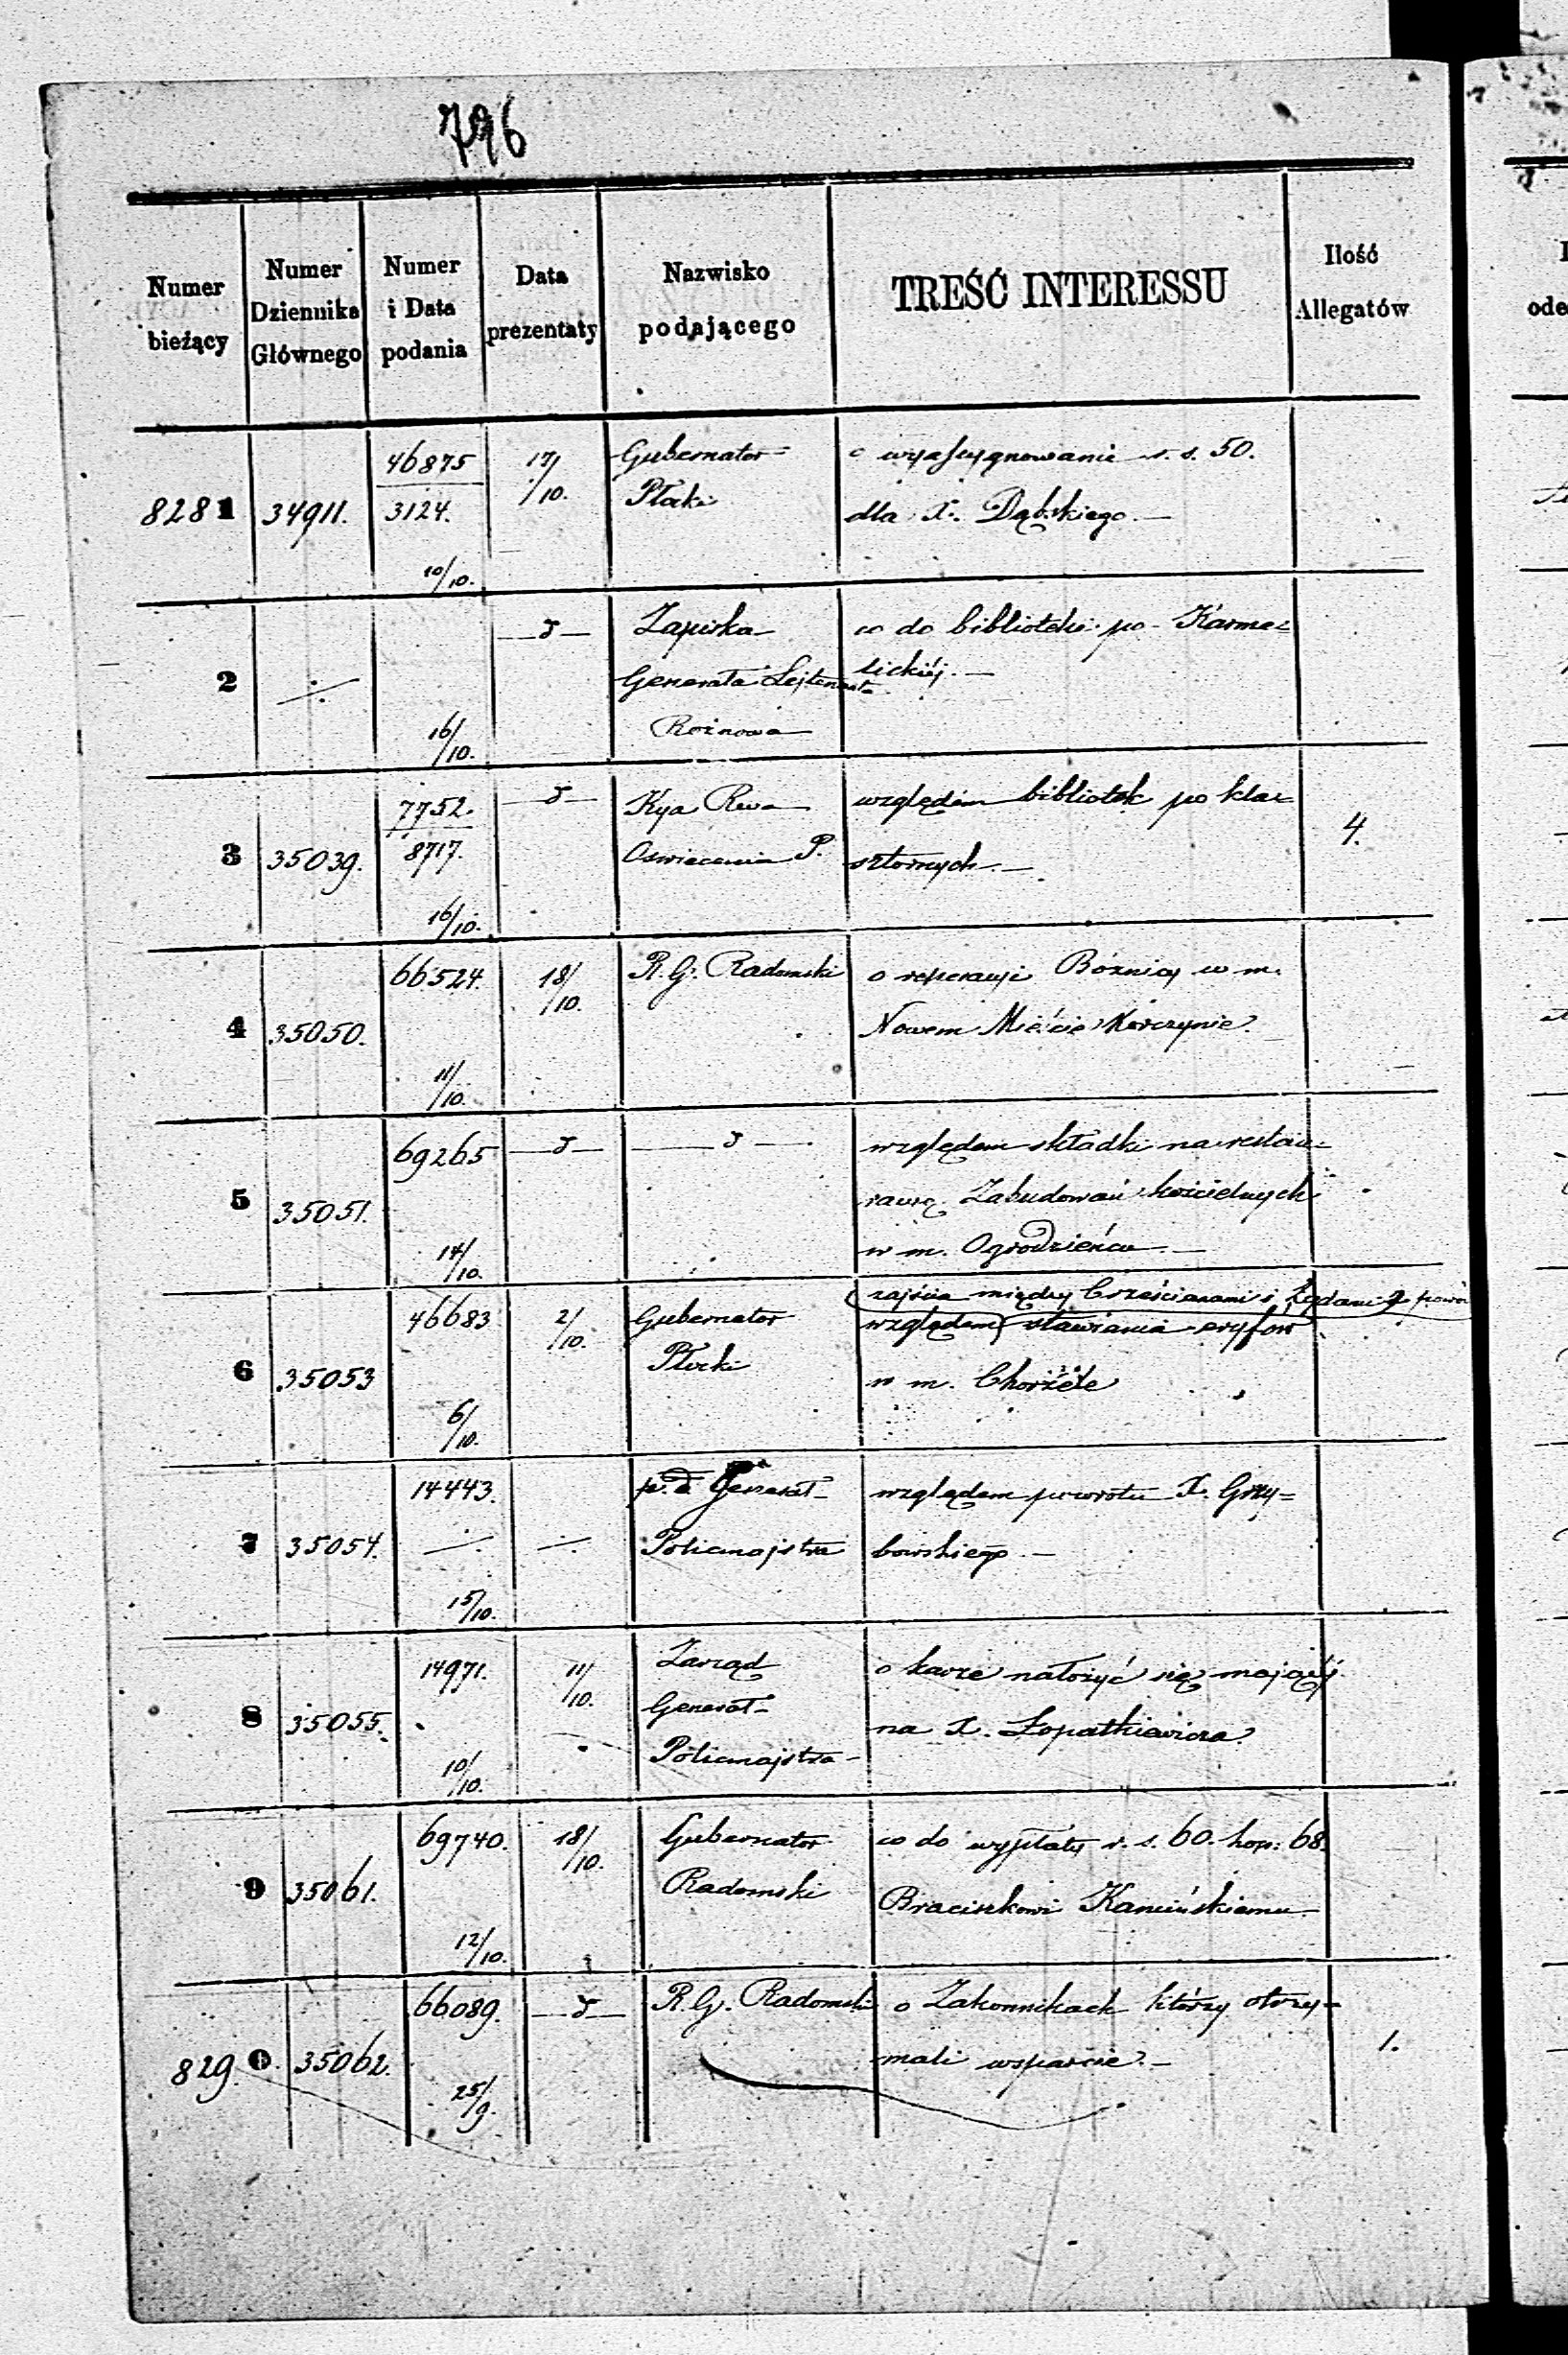 796
Numer bieżący
Numer Dziennika Głównego
Numer i Data podania
Data prezentaty
Nazwisko podającego
TREŚĆ INTERESSU
Ilość Allegatów
8281 34911. 46875 3124. 10/10. 17/10. Gubernator Płocki
o wyassygnowanie r. s. 50.
dla X. Dąbskiego.—
2 16/10. Zapiska Generała Lejtenanta Rożnowa
co do biblioteki po Karme=
lickiéj.—
3 35039. 7752. 8717. 16/10. Kya Rwa Oświecenia P.
względem bibliotek po kla=
sztornych.— 4.
4 35050. 66524. 11/10. 18/10. R. G. Radomski
o reperacyi Bóżnicy w m.
Nowem Mieście Korczynie.
5 35051. 69265 14/10.
względem składki na restau=
racyę Zabudowań kościelnych
w m. Ogrodzieńcu.—
6 35053 46683 6/10. 2/10. Gubernator Płocki
zajścia między Crześcianami i Żydami z powo
względem stawiania eryfow
w m. Chorzele
7 35054. 14443. 15/10. p. o. Generał- Policmajstra
względem powrotu X. Grzy=
bowskiego.—
8 35055. 14971. 10/10. 11/10. Zarząd Generał- Policmajstra
o karze nałożyć się mającéj
na X. Łopatkiewicza.
9 35061. 69740. 12/10. 18/10. Gubernator Radomski
co do wypłaty r. s. 60. kop: 68.
Braciszkowi Kamińskiemu
8290. 35062. 66089. 25/9. R. G. Radomski
o Zakonnikach którzy otrzy=
mali wsparcie.— 1.